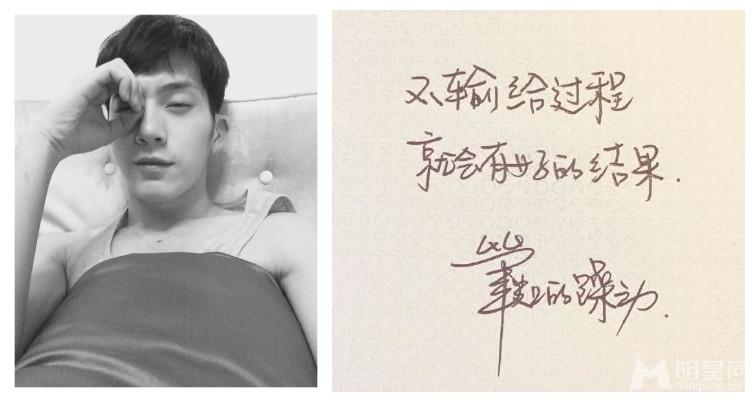 不输给过程
就会有好的结果.
的躁动.
明星网
mingxing.com